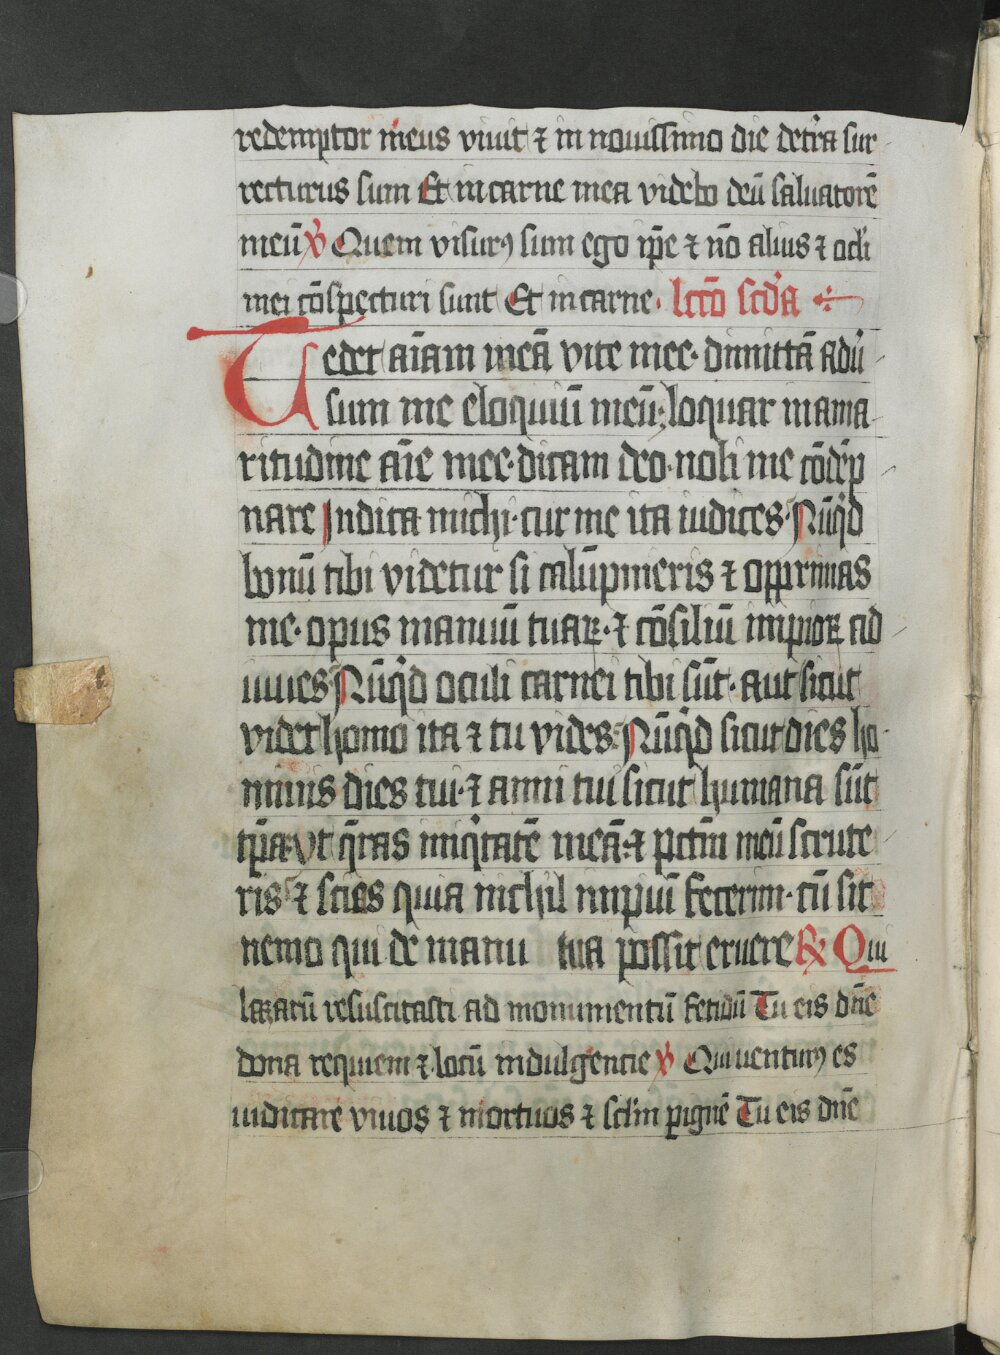 redemptor meus viuit ⁊ in nouissimo die det̃ra sur
recturus sum Et in carne mea videbo deū saluatorē
meū ℣ Quem visurꝰ sum ego ip̄e ⁊ nō alius ⁊ oc̄li
mei cōspecturi sunt Et in carne. lcc̄o sc̄da
Tedet aīam meā vite mee· dimittā adū
sum me eloquiū meū: loquar in ama
ritudine aīe mee· dicam deo· noli me cōdēp
nare Indica michi· cur me ita iudices· Nūqͥd
bonū tibi videtur si calūpnieris ⁊ opprimas
me· opus manuū tuaꝝ· ⁊ cōsiliū impioꝝ ad
iuues Nūqͥd oculi carnei tibi sūt· aut sicut
videt homo ita ⁊ tu vides: Nūqͥd sicut dies ho
minis dies tui· ⁊ anni tui sicut humana sūt
tp̄a· vt q̄ras iniqͥtatē meā· ⁊ pctm̄ meū scrute
ris ⁊ scies quia nichil impiū fecerim· cū sit
nemo qui de manu tua possit eruere ℟ Qui
lazarū resuscitasti ad monumentū fetidū Tu eis dn̄e
dona requiem ⁊ locū indulgencie ℣ Qui venturꝰ es
iudicare viuos ⁊ mortuos ⁊ scl̄m p ignē Tu eis dn̄e